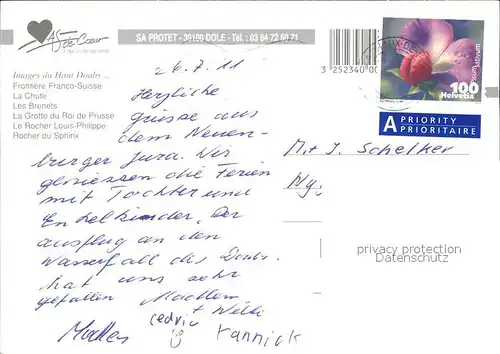 As de Cœur
SA PROTET - 39100 DOLE - Tel. : 03 84 72 60 71
Images du Haut Doubs ...
Frontière Franco-Suisse
La Chute
Les Brenets
La Grotte du Roi de Prusse
Le Rocher Louis-Philippe
Rocher du Sphinx
3 252340 00
100
Helvetia
A PRIORITY
PRIORITAIRE
26.7.11
Herzliche
grüsse aus
dem Neuen-
burger Jura. Wir
geniessen die Ferien
mit Tochter und
Enkelkinder. Der
ausflug an den
Wasserfall des Doubs
hat uns sehr
gefallen
+ Willi
cedric
Yannick
M + J. Schelker
privacy protection
Datenschutz